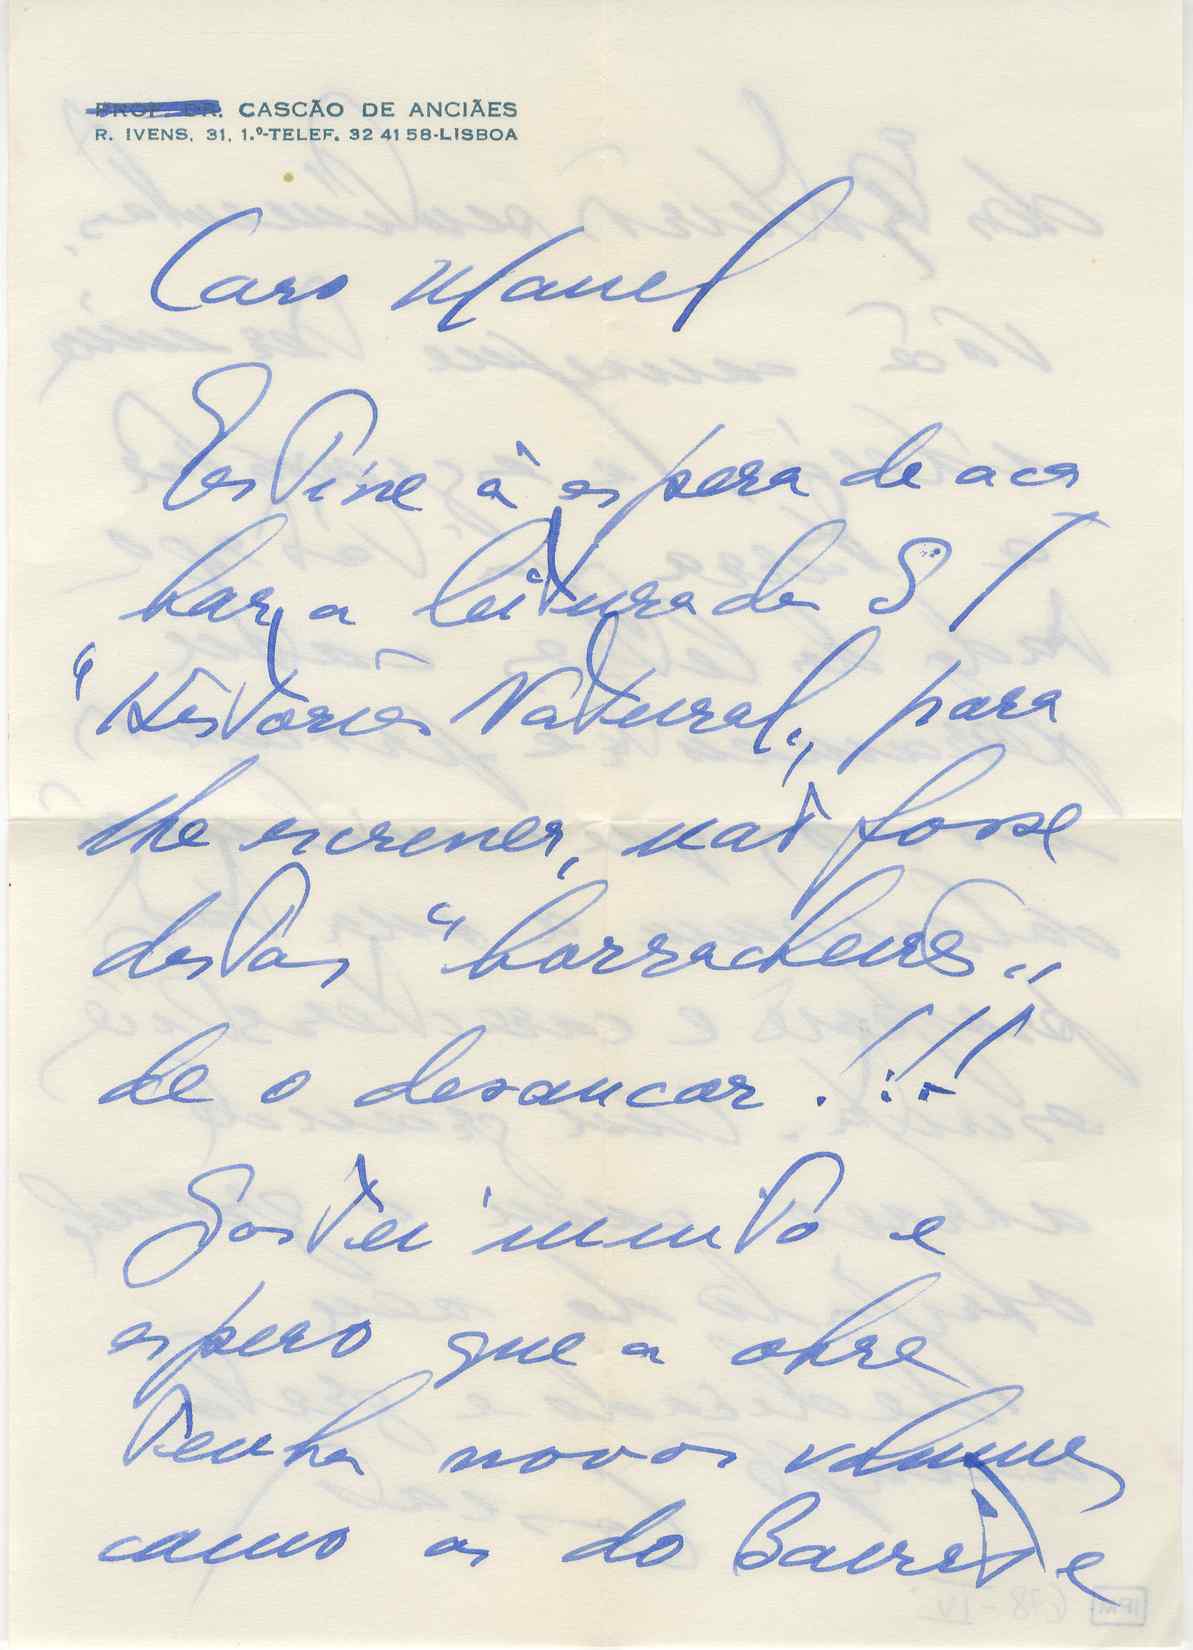 PROF. DR. CASCÃO DE ANCIÃES
R. IVENS, 31, 1.º-TELEF. 32 41 58-LISBOA
Caro Manel
Estive à espera de aca
bar a leitura da S/
"Histórias Natural", para
lhe escrever, não fosse
destas "borracheiras"
de o desancar!!!
Gostei muito e
espero que a obra
tenha novos volumes
como os do Bairro e
IPM 678-IV